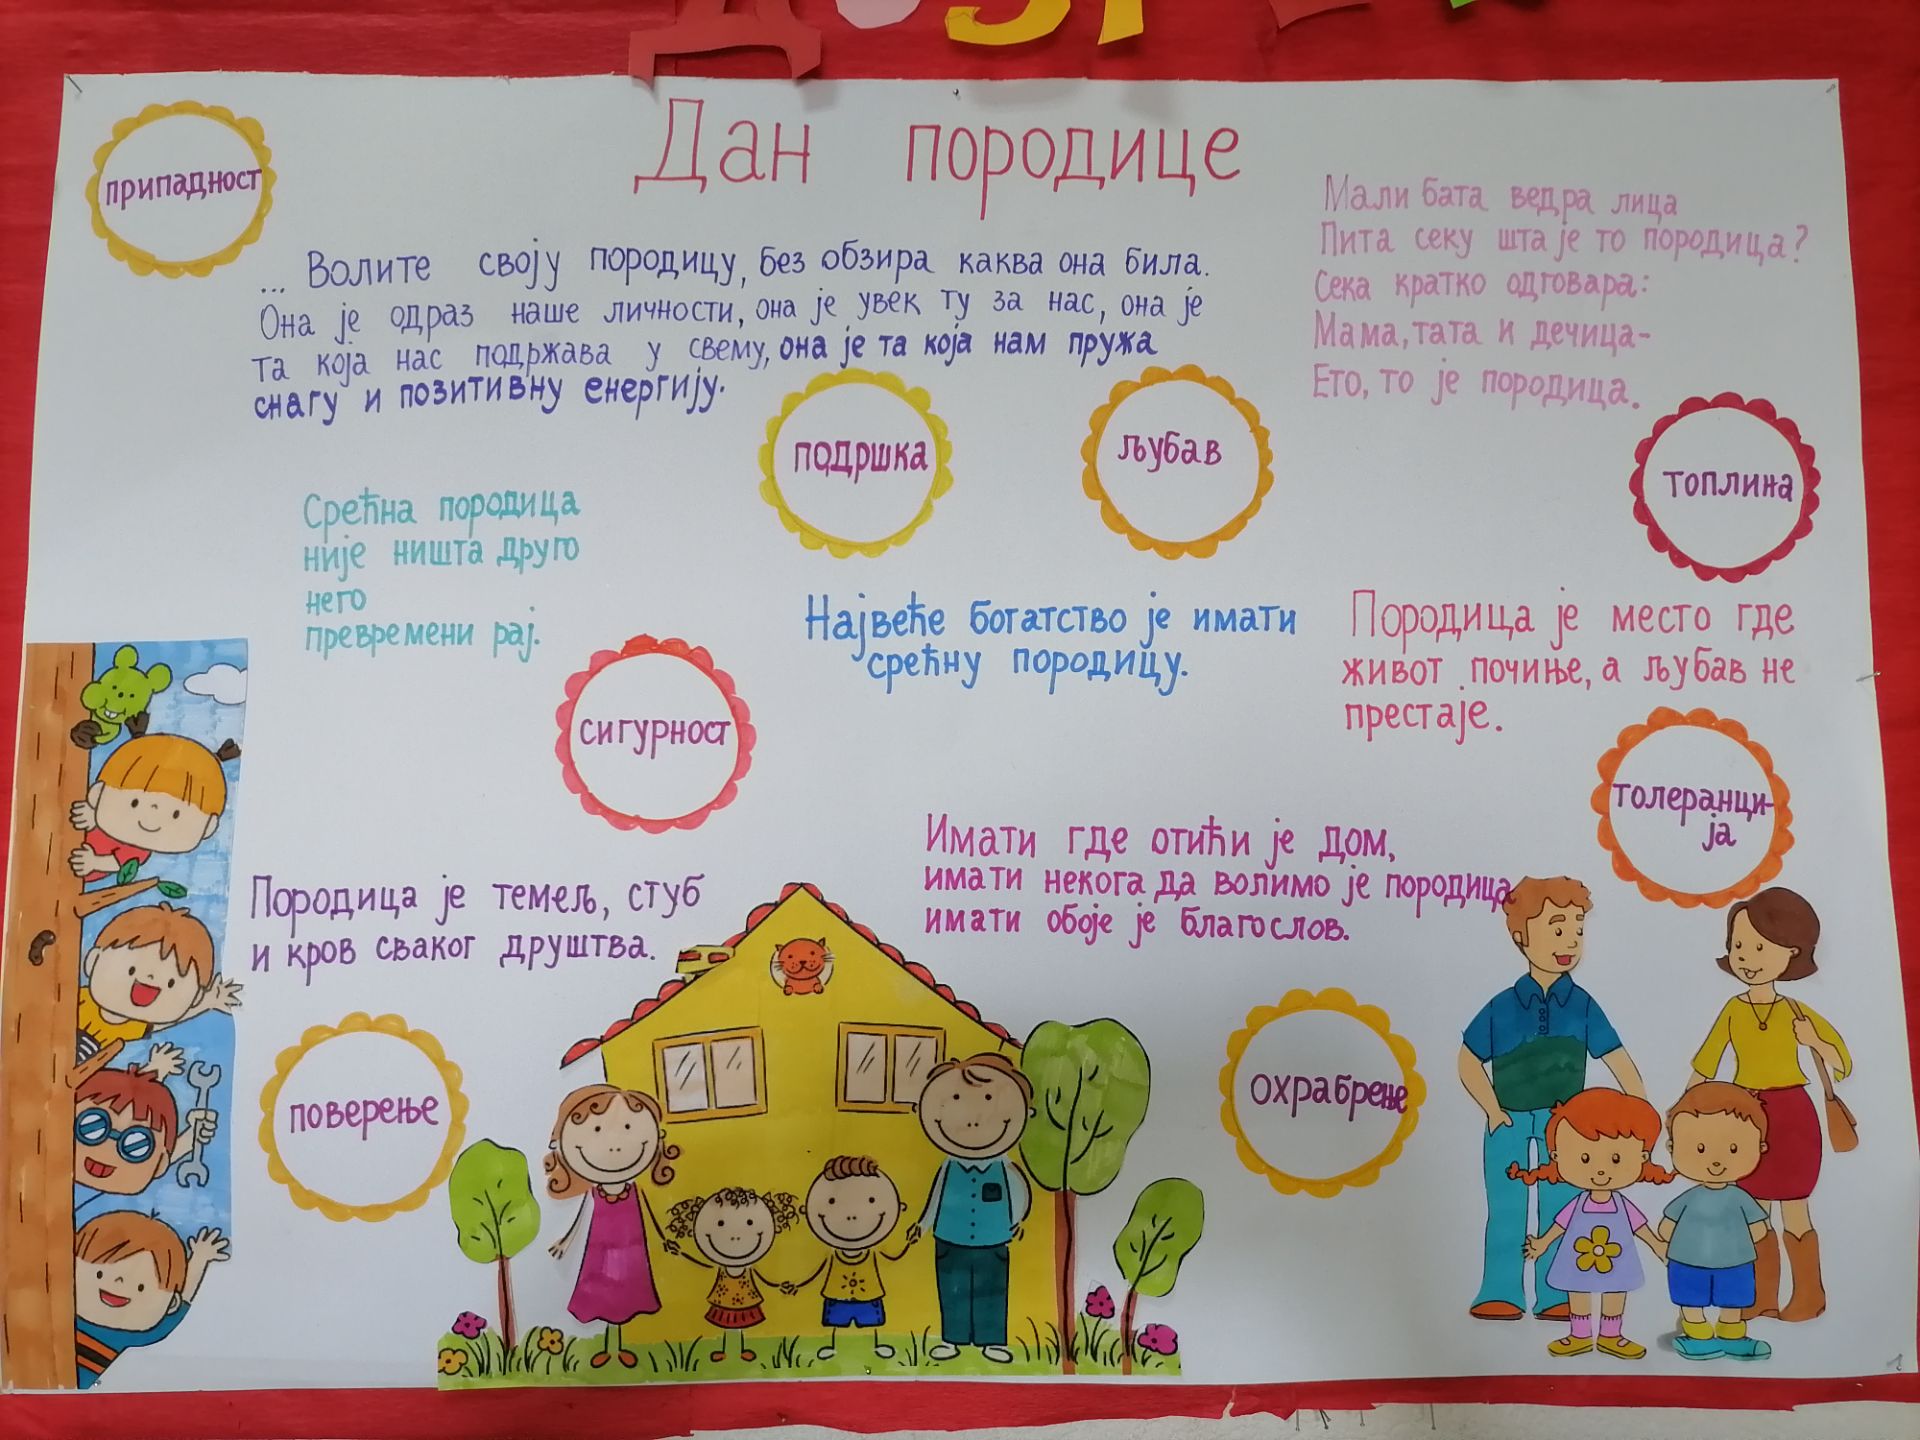 Дан породице
припадност
... Волите своју породицу, без обзира каква она била.
Она је одраз наше личности, она је увек ту за нас, она је
та која нас подржава у свему, она је та која нам пружа
снагу и позитивну енергију.
Мали бата ведра лица
Пита секу шта је то породица?
Сека кратко одговара:
Мама, тата и дечица-
Ето, то је породица.
подршка
љубав
топлина
Срећна породица
није ништа друго
него
превремени рај.
Највеће богатство је имати
срећну породицу.
Породица је место где
живот почиње, а љубав не
престаје.
сигурност
толеранци-
ја
Породица је темељ, стуб
и кров сваког друштва.
Имати где отићи је дом,
имати некога да волимо је породица
имати обоје је благослов.
поверење
охрабрење